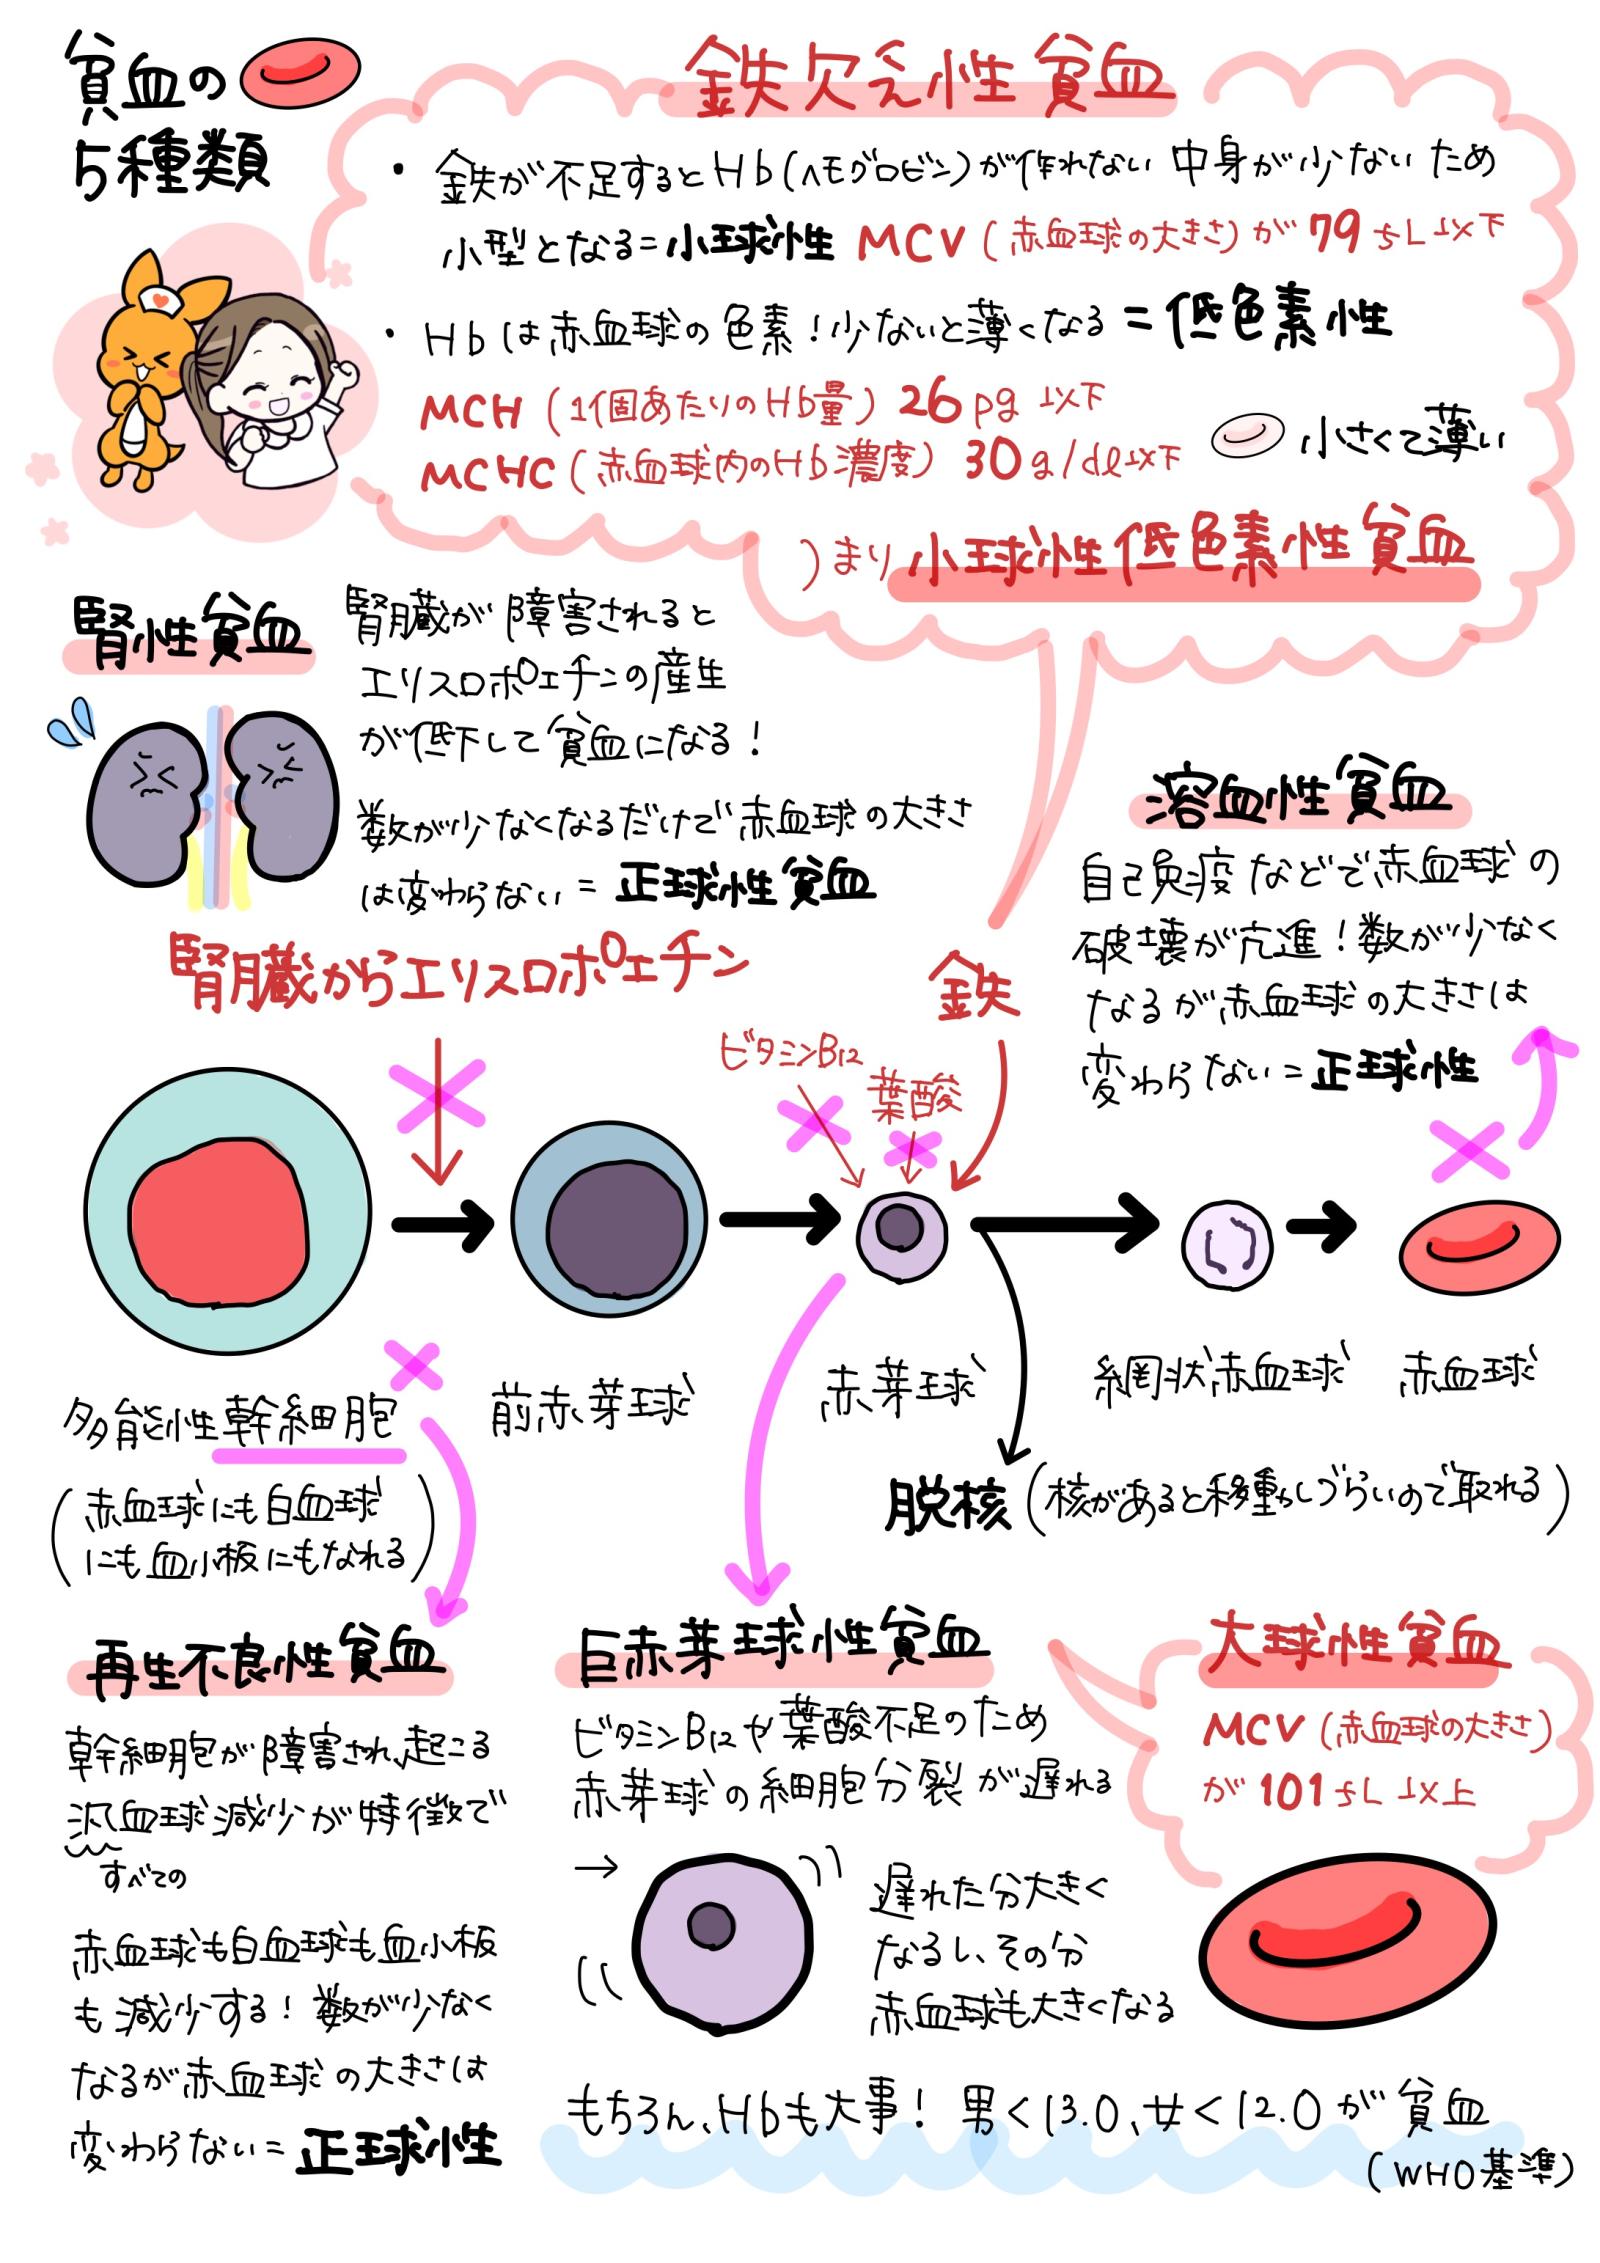 貧血の
5種類
鉄欠乏性貧血
・鉄が不足するとHb(ヘモグロビン)が作れない 中身が少ないため
小型となる=小球性 MCV(赤血球の大きさ)が79fL以下
・Hbは赤血球の色素!少ないと薄くなる=低色素性
MCH(1個あたりのHb量)26pg以下
MCHC(赤血球内のHb濃度)30g/dl以下
小さくて薄い
つまり小球性低色素性貧血
腎性貧血
腎臓が障害されると
エリスロポエチンの産生
が低下して貧血になる!
数が少なくなるだけで赤血球の大きさ
は変わらない=正球性貧血
溶血性貧血
自己免疫などで赤血球の
破壊が亢進!数が少なく
なるが赤血球の大きさは
変わらない=正球性
腎臓からエリスロポエチン
ビタミンB12
葉酸
鉄
多能性幹細胞
(赤血球にも白血球
にも血小板にもなれる)
前赤芽球
赤芽球
網状赤血球
赤血球
脱核(核があると移動しづらいので取れる)
再生不良性貧血
幹細胞が障害され、起こる
汎血球減少が特徴で
すべての
赤血球も白血球も血小板
も減少する!数が少なく
なるが赤血球の大きさは
変わらない=正球性
巨赤芽球性貧血
ビタミンB12や葉酸不足のため
赤芽球の細胞分裂が遅れる
→
遅れた分大きく
なるし、その分
赤血球も大きくなる
大球性貧血
MCV(赤血球の大きさ)
が101fL以上
もちろん、Hbも大事!男<13.0、女<12.0が貧血
(WHO基準)